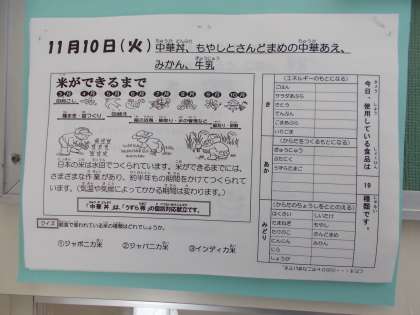 11月10日(火) 中華丼、もやしとさんどまめの中華あえ、
みかん、牛乳
米ができるまで
3月 4月 5月 6月 7月 8月 9月 10月
日本の米は水田でつくられています。米ができるまでには、
さまざまな作業があり、約半年もの期間をかけてつくられて
います。(気温や気候によってかかる期間は変わります。)
「中華丼」は、「うずら卵」の個別対応献立です。
クイズ 給食で使われている米の種類はどれでしょうか。
①ジャポニカ米 ②ジャバニカ米 ③インディカ米
今日、使用している食品は、19種類です。
(エネルギーのもとになる)
ごはん
サラダあぶら
さとう
でんぷん
ごまあぶら
いりごま
(からだをつくるもとになる)
ぎゅうにゅう
ぶたにく
うずらたまご
みどり
(からだのちょうしをととのえる)
はくさい しいたけ
たまねぎ もやし
たけのこ さんどまめ
にんじん みかん
にら
しょうが